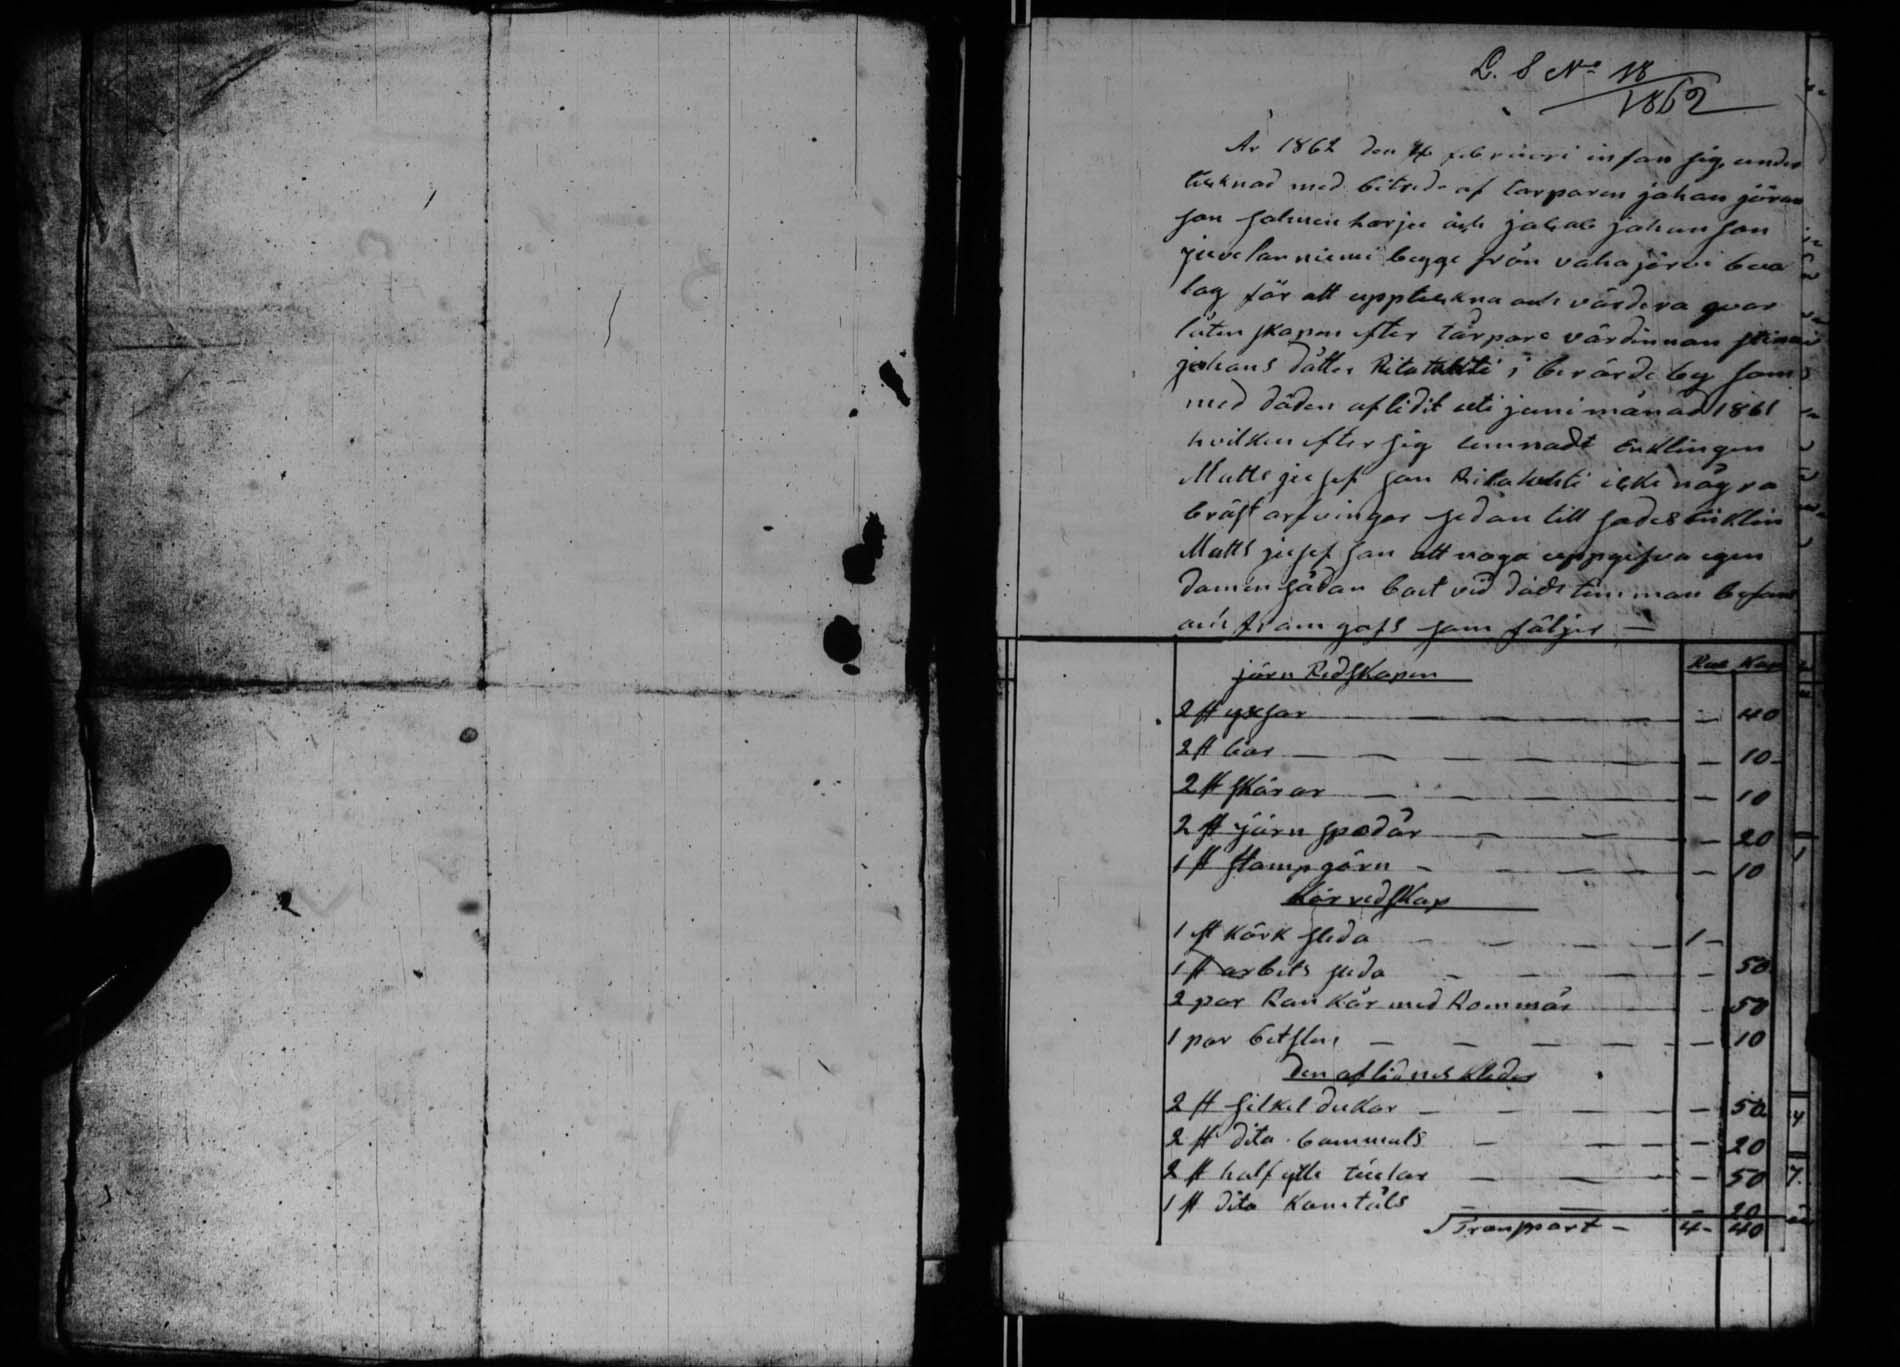 L. S No 18
1862
År 1862 den 4 februari infan sig, under
tecknad med bitrede af torparen johan jöran
son salmen harju åch jakab johan son
juvelanniemi begge från vahajärvi bua
lag för att upptekna åch värdera qvar
låtenskapen efter tårpare värdinnan stina
johans dåtter Ritatahti i berörde by som
med döden aflidit uti juni månad 1861
hvilken efter sig lemnadt Enklingen
Matts josef son Ritatahti icke några
bröst arfvingar sedan till sades Enklin
Matts josef son att noga uppgifva egen
damen sådan baet vid döds timman befans
åch fram gafs som följer —
jörn Redskapen
Rub Kop
2 st yxsar — — 40
2 st liar — — 10
2 st skärar — — 10
2 st järn spadar — — 20
1 st stamp järn — — 10
Kör redskap
1 st körk sleda — 1 —
1 st arbets sleda — — 50
2 par Rankår med Rommår — 50
1 par betslar — — 10
Den aflidnes kleder
2 st silkes dukar — — 50
2 st dito bommuls — — 20
2 st half ylle — — 50
1 st dito — — 20
Transport — 4 — 40